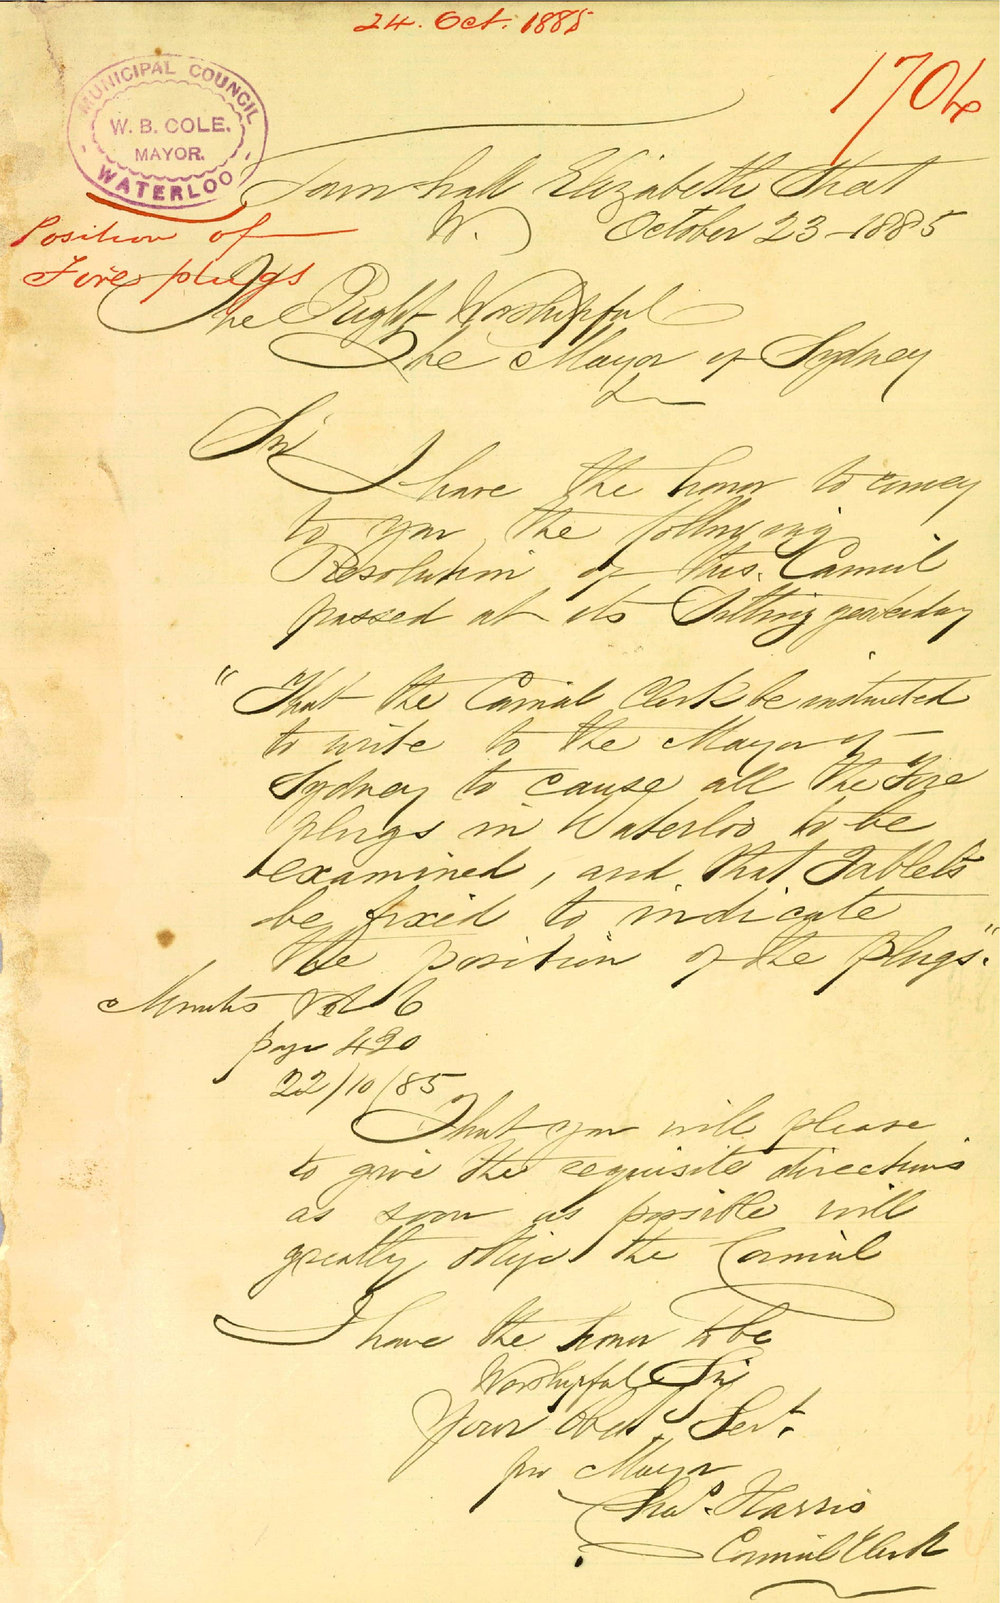 24. Oct. 1885
1704
MUNICIPAL COUNCIL
W. B. COLE.
MAYOR.
WATERLOO
Town hall Elizabeth Street
W. October 23 - 1885
Position of
Fire plugs
The Right Worshipful
The Mayor of Sydney
Sir
I have the honor to convey
to you the following
Resolution of this Council
passed at its Sitting yesterday
"That the Council Clerk be instructed
to write to the Mayor of
Sydney to cause all the Fire
plugs in Waterloo to be
examined, and that Tablets
be fixed to indicate
the position of the plugs".
Minutes Vol 6
page 420
22/10/85
That you will please
to give the requisite directions
as soon as possible will
greatly oblige the Council
I have the honor to be
Worshipful Sir
Your Obed Servt.
pro Mayor
Thos. Harris
Council Clerk